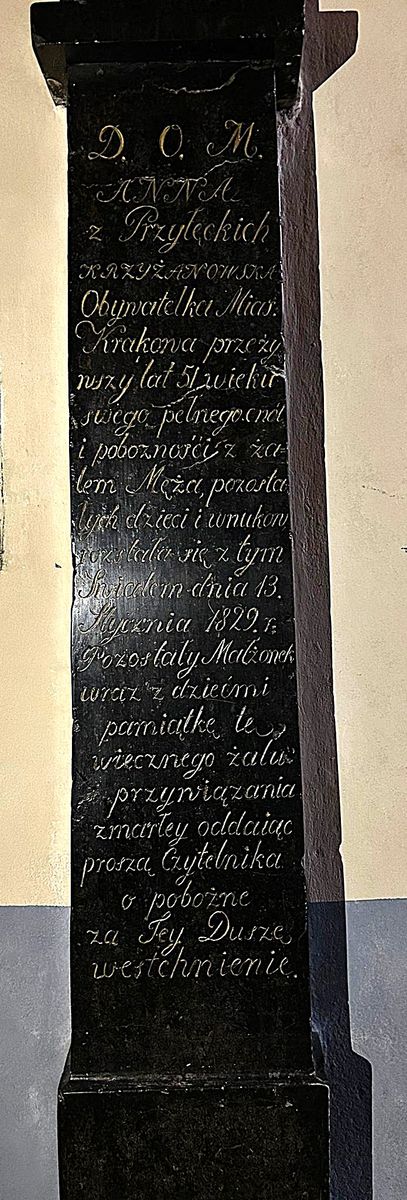 D. O. M.
ANNA
z Przyłęckich
KRZYŻANOWSKA
Obywatelka Mias.
Krakowa przeży
wszy lat 51 wieku
swego pełnego cnót
i pobożności z ża-
lem Męża, pozosta
łych dzieci i wnuków
rozstała się z tym
Światem dnia 13.
Stycznia 1829 r.
Pozostały Małżonek
wraz z dziećmi
pamiątkę tę
wiecznego żalu
przywiązania
zmarłey oddaiąc
proszą Czytelnika
o pobożne
za Jey Duszę
westchnienie.